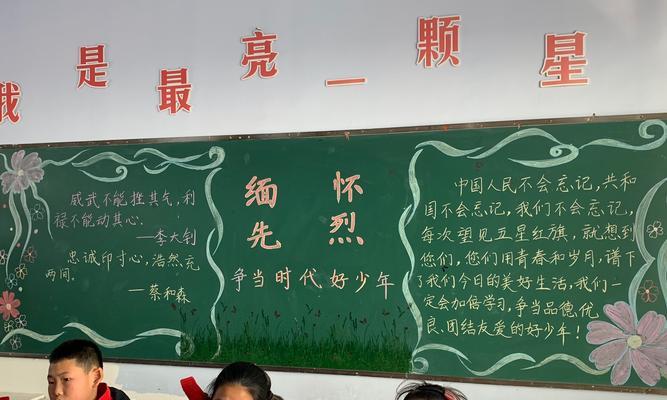 我是最亮一颗星
威武不能挫其气,利
禄不能动其心.
——李大钊
忠诚印寸心,浩然充
两间.
——蔡和森
缅怀
先烈
争当时代好少年
中国人民不会忘记,共和
国不会忘记,我们不会忘记,
每次望见五星红旗,就想到
您们,您们用青春和岁月,谱下
了我们今日的美好生活,我们一
定会加倍学习,争当品德优
良、团结友爱的好少年!